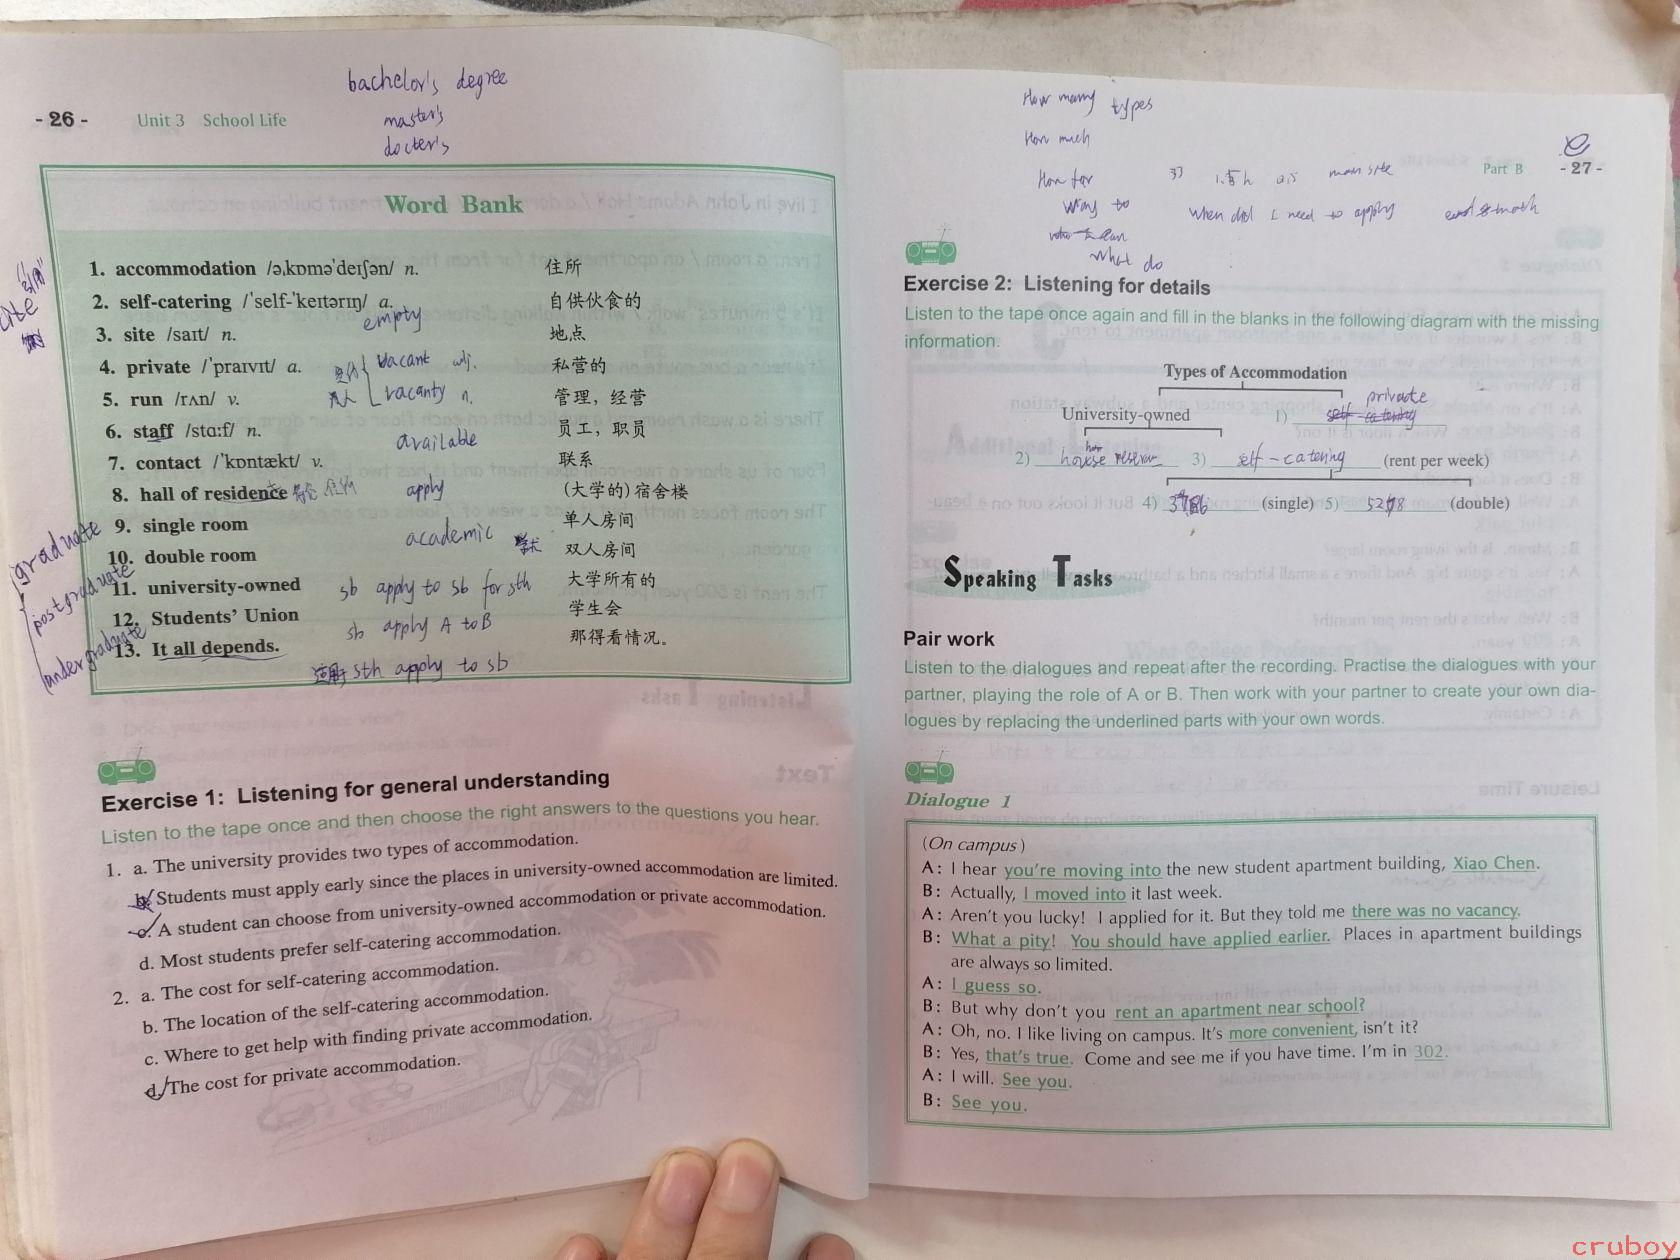 bachelor's degree
- 26 - Unit 3 School Life
master's
docter's
Word Bank
1. accommodation /əˌkɒməˈdeɪʃən/ n. 住所
2. self-catering /ˈself-ˈkeɪtərɪŋ/ a. 自供伙食的
empty
3. site /saɪt/ n. 地点
4. private /ˈpraɪvɪt/ a. vacant adj. 私营的
5. run /rʌn/ v. vacanty n. 管理，经营
6. staff /stɑːf/ n. available 员工，职员
7. contact /ˈkɒntækt/ v. 联系
8. hall of residence apply (大学的)宿舍楼
9. single room academic 单人房间
10. double room 双人房间
11. university-owned sb apply to sb for sth 大学所有的
12. Students' Union sb apply A to B 学生会
13. It all depends. 那得看情况。
适用 sth apply to sb
cite
graduate
postgraduate
undergraduate
Exercise 1: Listening for general understanding
Listen to the tape once and then choose the right answers to the questions you hear.
1. a. The university provides two types of accommodation.
b. Students must apply early since the places in university-owned accommodation are limited.
c. A student can choose from university-owned accommodation or private accommodation.
d. Most students prefer self-catering accommodation.
2. a. The cost for self-catering accommodation.
b. The location of the self-catering accommodation.
c. Where to get help with finding private accommodation.
d. The cost for private accommodation.
How many types
How much
How far main site
Part B - 27 -
way to when did I need to apply
what do
Exercise 2: Listening for details
Listen to the tape once again and fill in the blanks in the following diagram with the missing
information.
Types of Accommodation
private
University-owned 1) self-catering
2) house 3) self-catering (rent per week)
4) (single) 5) (double)
Speaking Tasks
Pair work
Listen to the dialogues and repeat after the recording. Practise the dialogues with your
partner, playing the role of A or B. Then work with your partner to create your own dia-
logues by replacing the underlined parts with your own words.
Dialogue 1
(On campus)
A: I hear you're moving into the new student apartment building, Xiao Chen.
B: Actually, I moved into it last week.
A: Aren't you lucky! I applied for it. But they told me there was no vacancy.
B: What a pity! You should have applied earlier. Places in apartment buildings
are always so limited.
A: I guess so.
B: But why don't you rent an apartment near school?
A: Oh, no. I like living on campus. It's more convenient, isn't it?
B: Yes, that's true. Come and see me if you have time. I'm in 302.
A: I will. See you.
B: See you.
cruboy